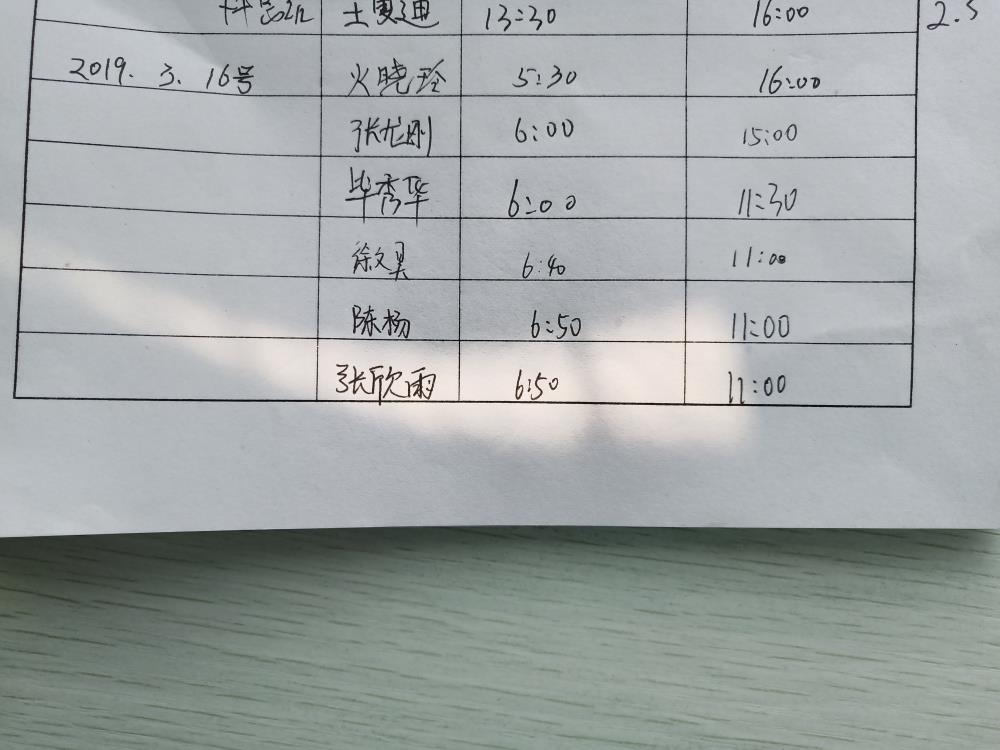 13:30 16:00 2.5
2019. 3. 16号 火晓玲 5:30 16:00
张尤刚 6:00 15:00
毕秀华 6:00 11:30
徐文昊 6:40 11:00
陈杨 6:50 11:00
张欣雨 6:50 11:00